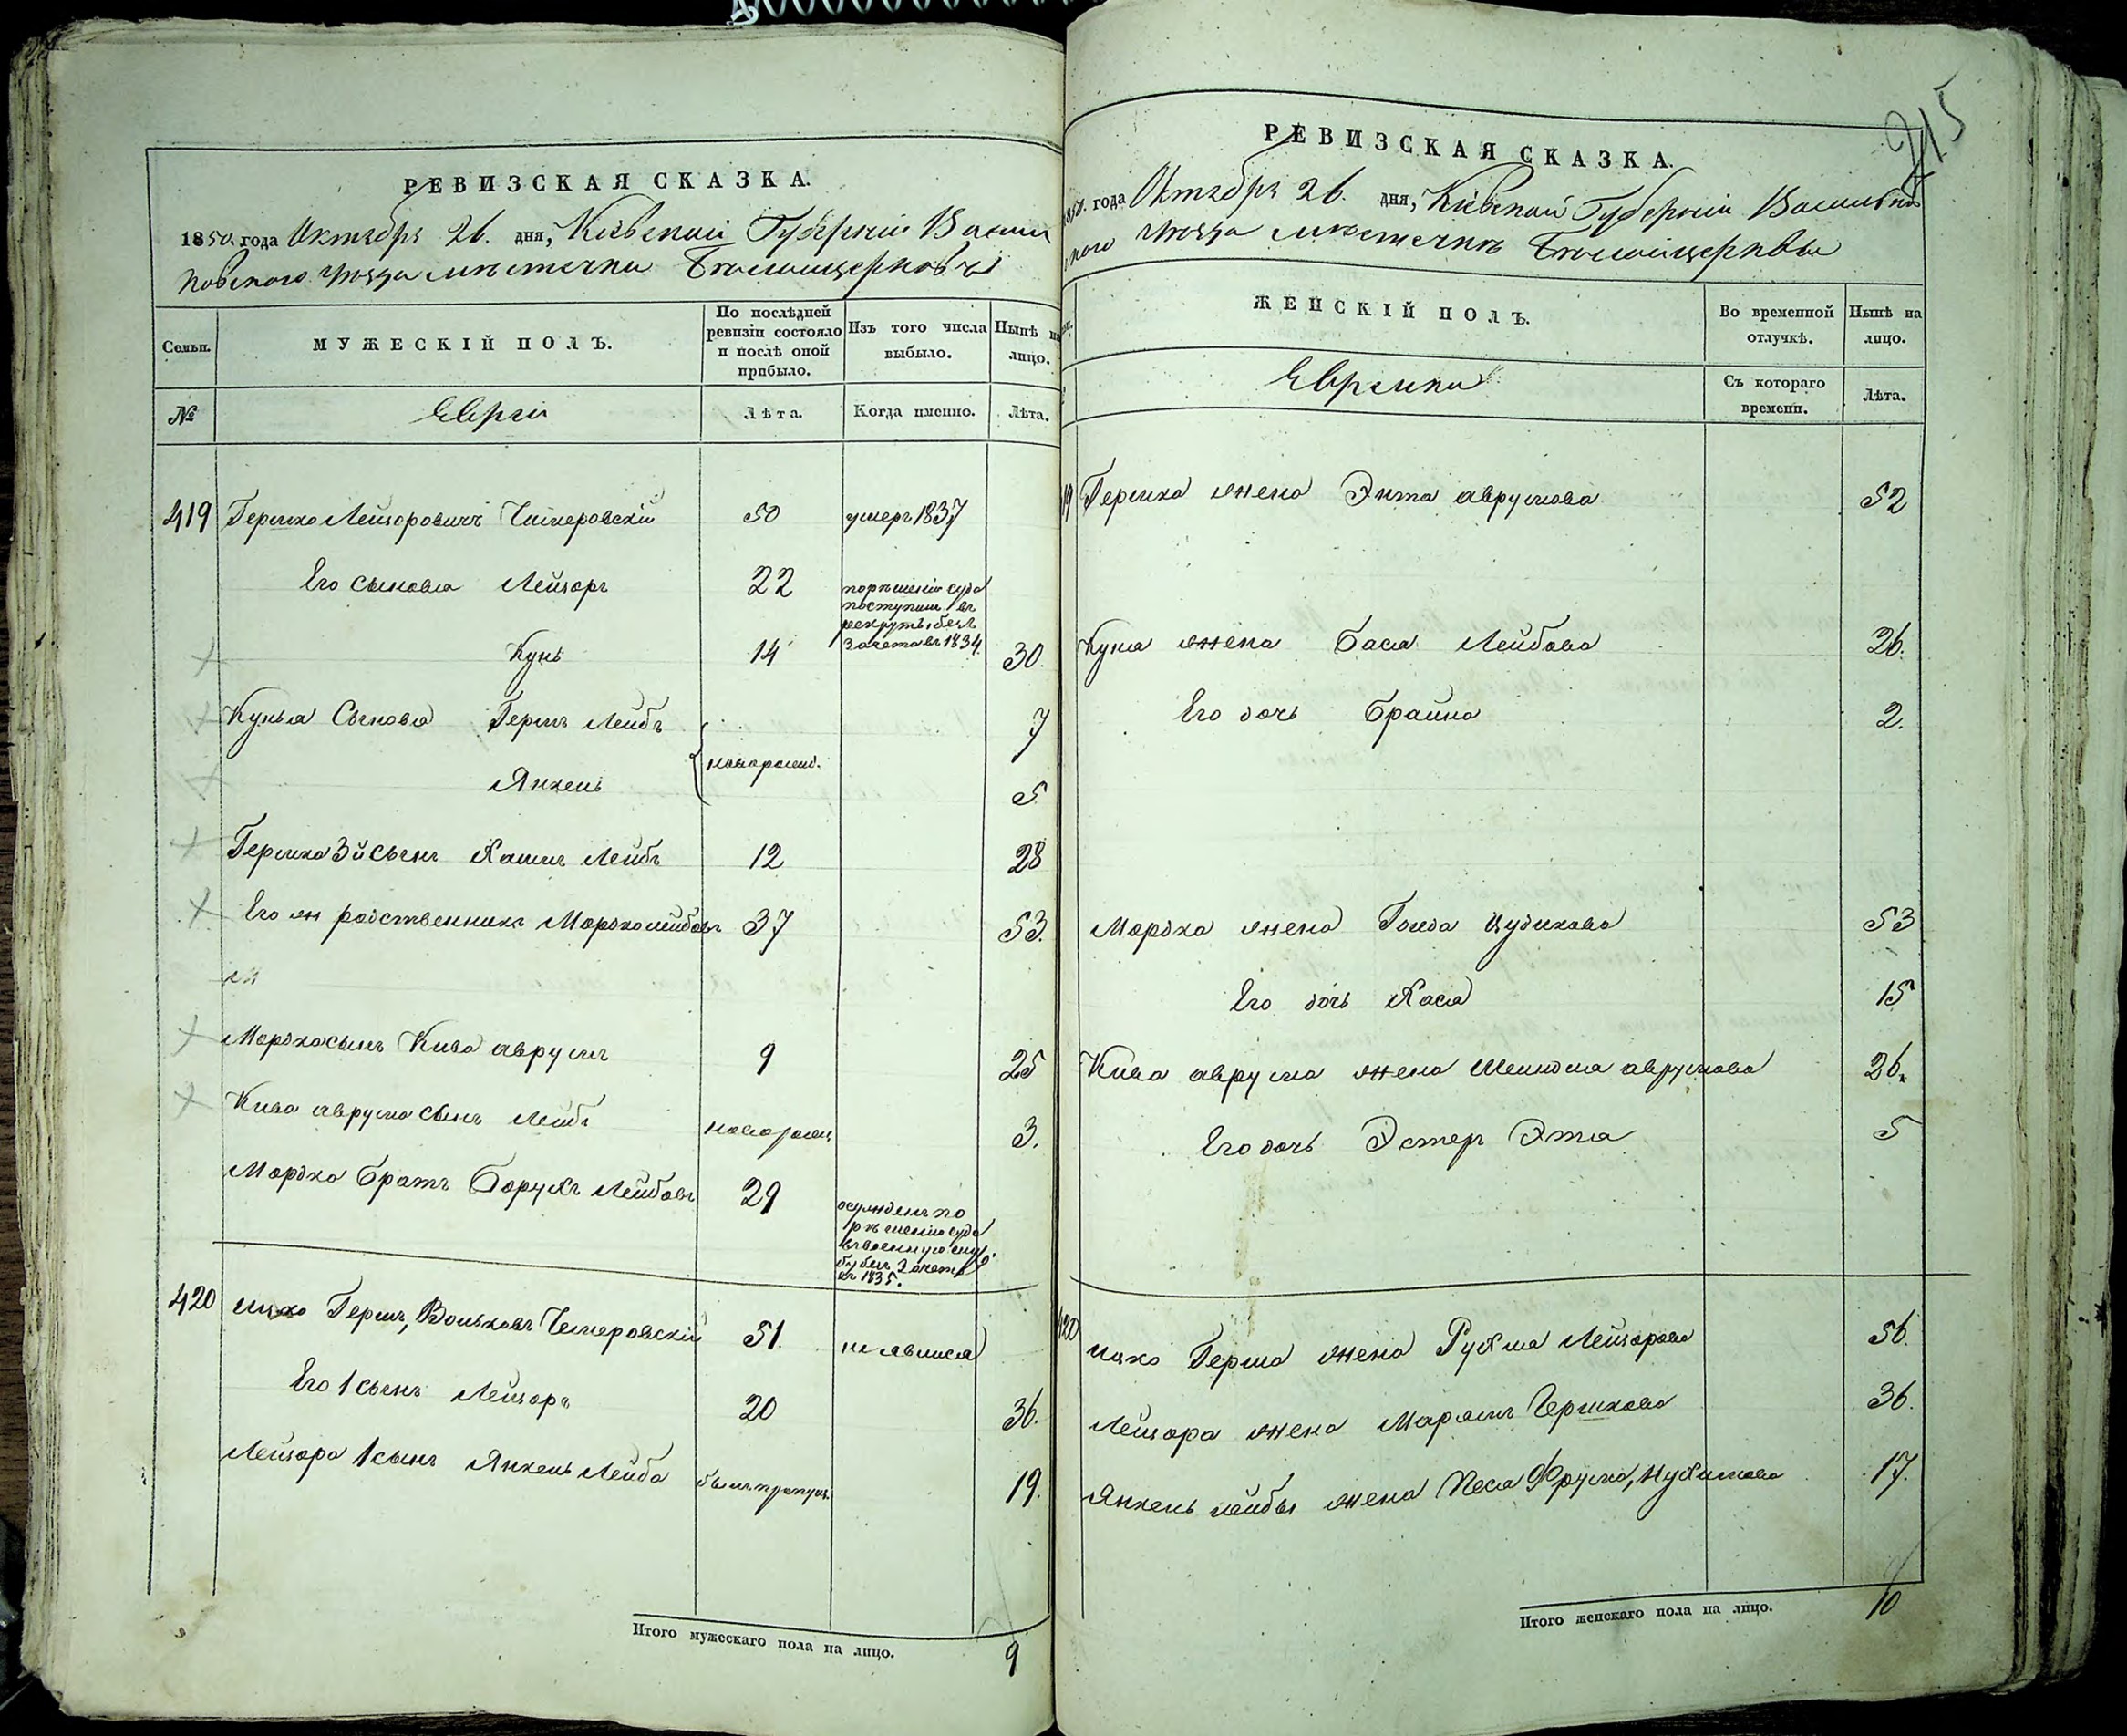 РЕВИЗСКАЯ СКАЗКА.
1850. года Октября 26. дня, Кіевской Губерніи Василь
ковского Уезда местечка Белойцерквы
Семьи.
МУЖЕСКІЙ ПОЛЪ.
По послѣдней ревизіи состояло и послѣ оной прибыло.
Изъ того числа выбыло.
Нынѣ на лицо.
№
Евреи
Лѣта.
Когда именно.
Лѣта.
419 Гершко Лейзоровичъ Чемеровскій 50 умеръ 1837
Его сыновья Лейзоръ 22 порешению суда
поступилъ въ
рекруты, безъ
зачета въ 1834
Кунь 14 30.
Куньа Сыновья Гершъ Лейбъ 7
новорожд.
Янкель 5
Гершка 3й сынъ Хаимъ Лейбъ 12 28
Его же родственникъ Мордко Лейбовъ 37 53.
Мордка сынъ Кива аврумъ 9 25
Кива аврума сынъ Лейбъ новорожд 3.
Мордка братъ Борухъ Лейбовъ 29 осужденъ по
решенію суда
въ военную служ
бу безъ зачета
въ 1835.
420 Ицко Гершъ, Вольковъ Чемеровскій 51. не явился
Его 1 сынъ Лейзоръ 20 36.
Лейзора 1 сынъ Янкель Лейба былъ пропущ. 19.
Итого мужескаго пола на лицо. 9
215
РЕВИЗСКАЯ СКАЗКА.
1850. года Октября 26. дня, Кіевской Губерніи Васильков
ского Уезда местечка Белойцерквы
ЖЕНСКІЙ ПОЛЪ.
Во временной отлучкѣ.
Нынѣ на лицо.
Еврейки
Съ котораго времени.
Лѣта.
19 Гершка жена Энта аврумова 52
Куна жена Бася Лейбова 26.
Его дочь Брайна 2.
Мордка жена Голда Иудкова 53
Его дочь Хася 15
Кива аврума жена Шейндля аврумова 26.
Его дочь Эстер Эта 5
420 Ицко Герша жена Рухля Лейзорова 56.
Лейзора жена Марьям Гершкова 36.
Янкель Лейбы жена Песя Фрума, Нухимова 17.
Итого женскаго пола на лицо. 10